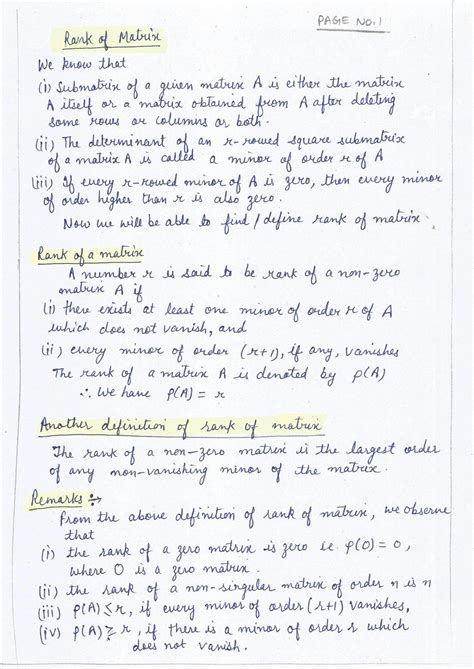 PAGE NO.1
Rank of Matrix
We know that
(i) Submatrix of a given matrix A is either the matrix
A itself or a matrix obtained from A after deleting
some rows or columns or both.
(ii) The determinant of an r-rowed square submatrix
of a matrix A is called a minor of order r of A
(iii) If every r-rowed minor of A is zero, then every minor
of order higher than r is also zero.
Now we will be able to find / define rank of matrix.
Rank of a matrix
A number r is said to be rank of a non-zero
matrix A if
(i) there exists at least one minor of order r of A
which does not vanish, and
(ii) every minor of order (r+1), if any, vanishes
The rank of a matrix A is denoted by ρ(A)
∴ We have ρ(A) = r
Another definition of rank of matrix
The rank of a non-zero matrix is the largest order
of any non-vanishing minor of the matrix.
Remarks :-
From the above definition of rank of matrix, we observe
that
(i) the rank of a zero matrix is zero i.e. ρ(O) = 0,
where O is a zero matrix.
(ii) the rank of a non-singular matrix of order n is n
(iii) ρ(A) ≤ r, if every minor of order (r+1) vanishes,
(iv) ρ(A) ≥ r, if there is a minor of order r which
does not vanish.